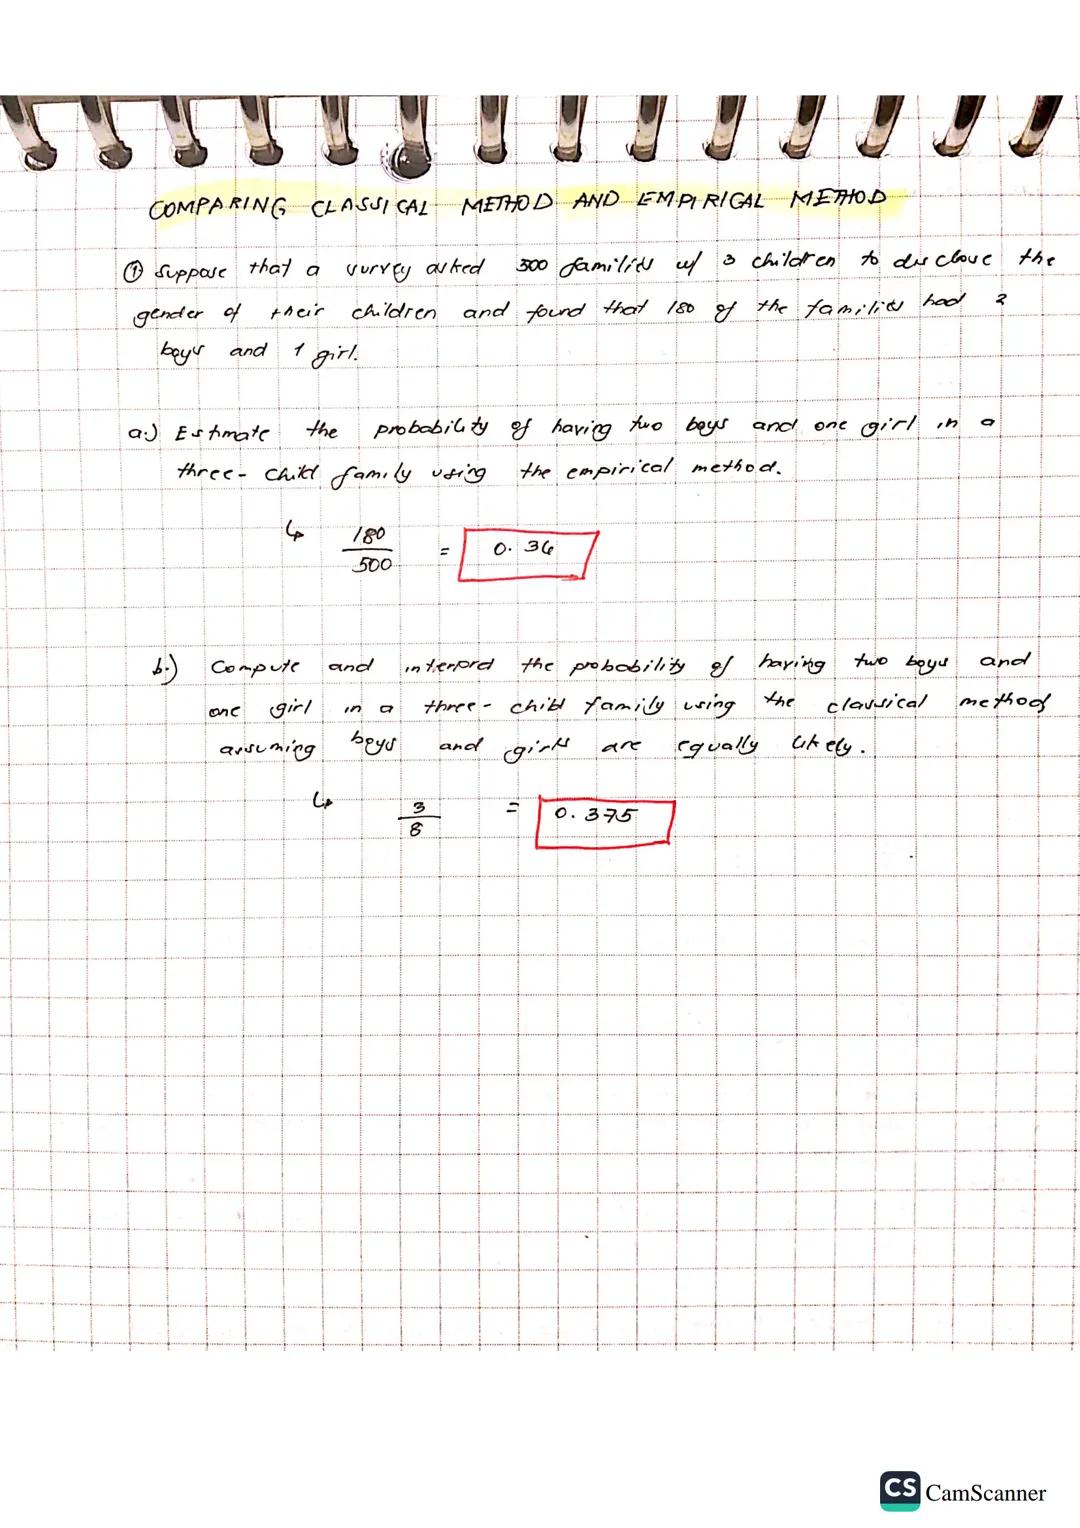 COMPARING CLASSICAL METHOD AND EMPIRICAL METHOD
① Suppose that a survey asked 500 families w/ 3 children to disclose the
gender of their children and found that 180 of the families had 2
boys and 1 girl.
a.) Estimate the probability of having two boys and one girl in a
three-child family using the empirical method.
↳ 180/500 = 0.36
b.) Compute and interpret the probability of having two boys and
one girl in a three-child family using the classical method
assuming boys and girls are equally likely.
↳ 3/8 = 0.375
CS CamScanner